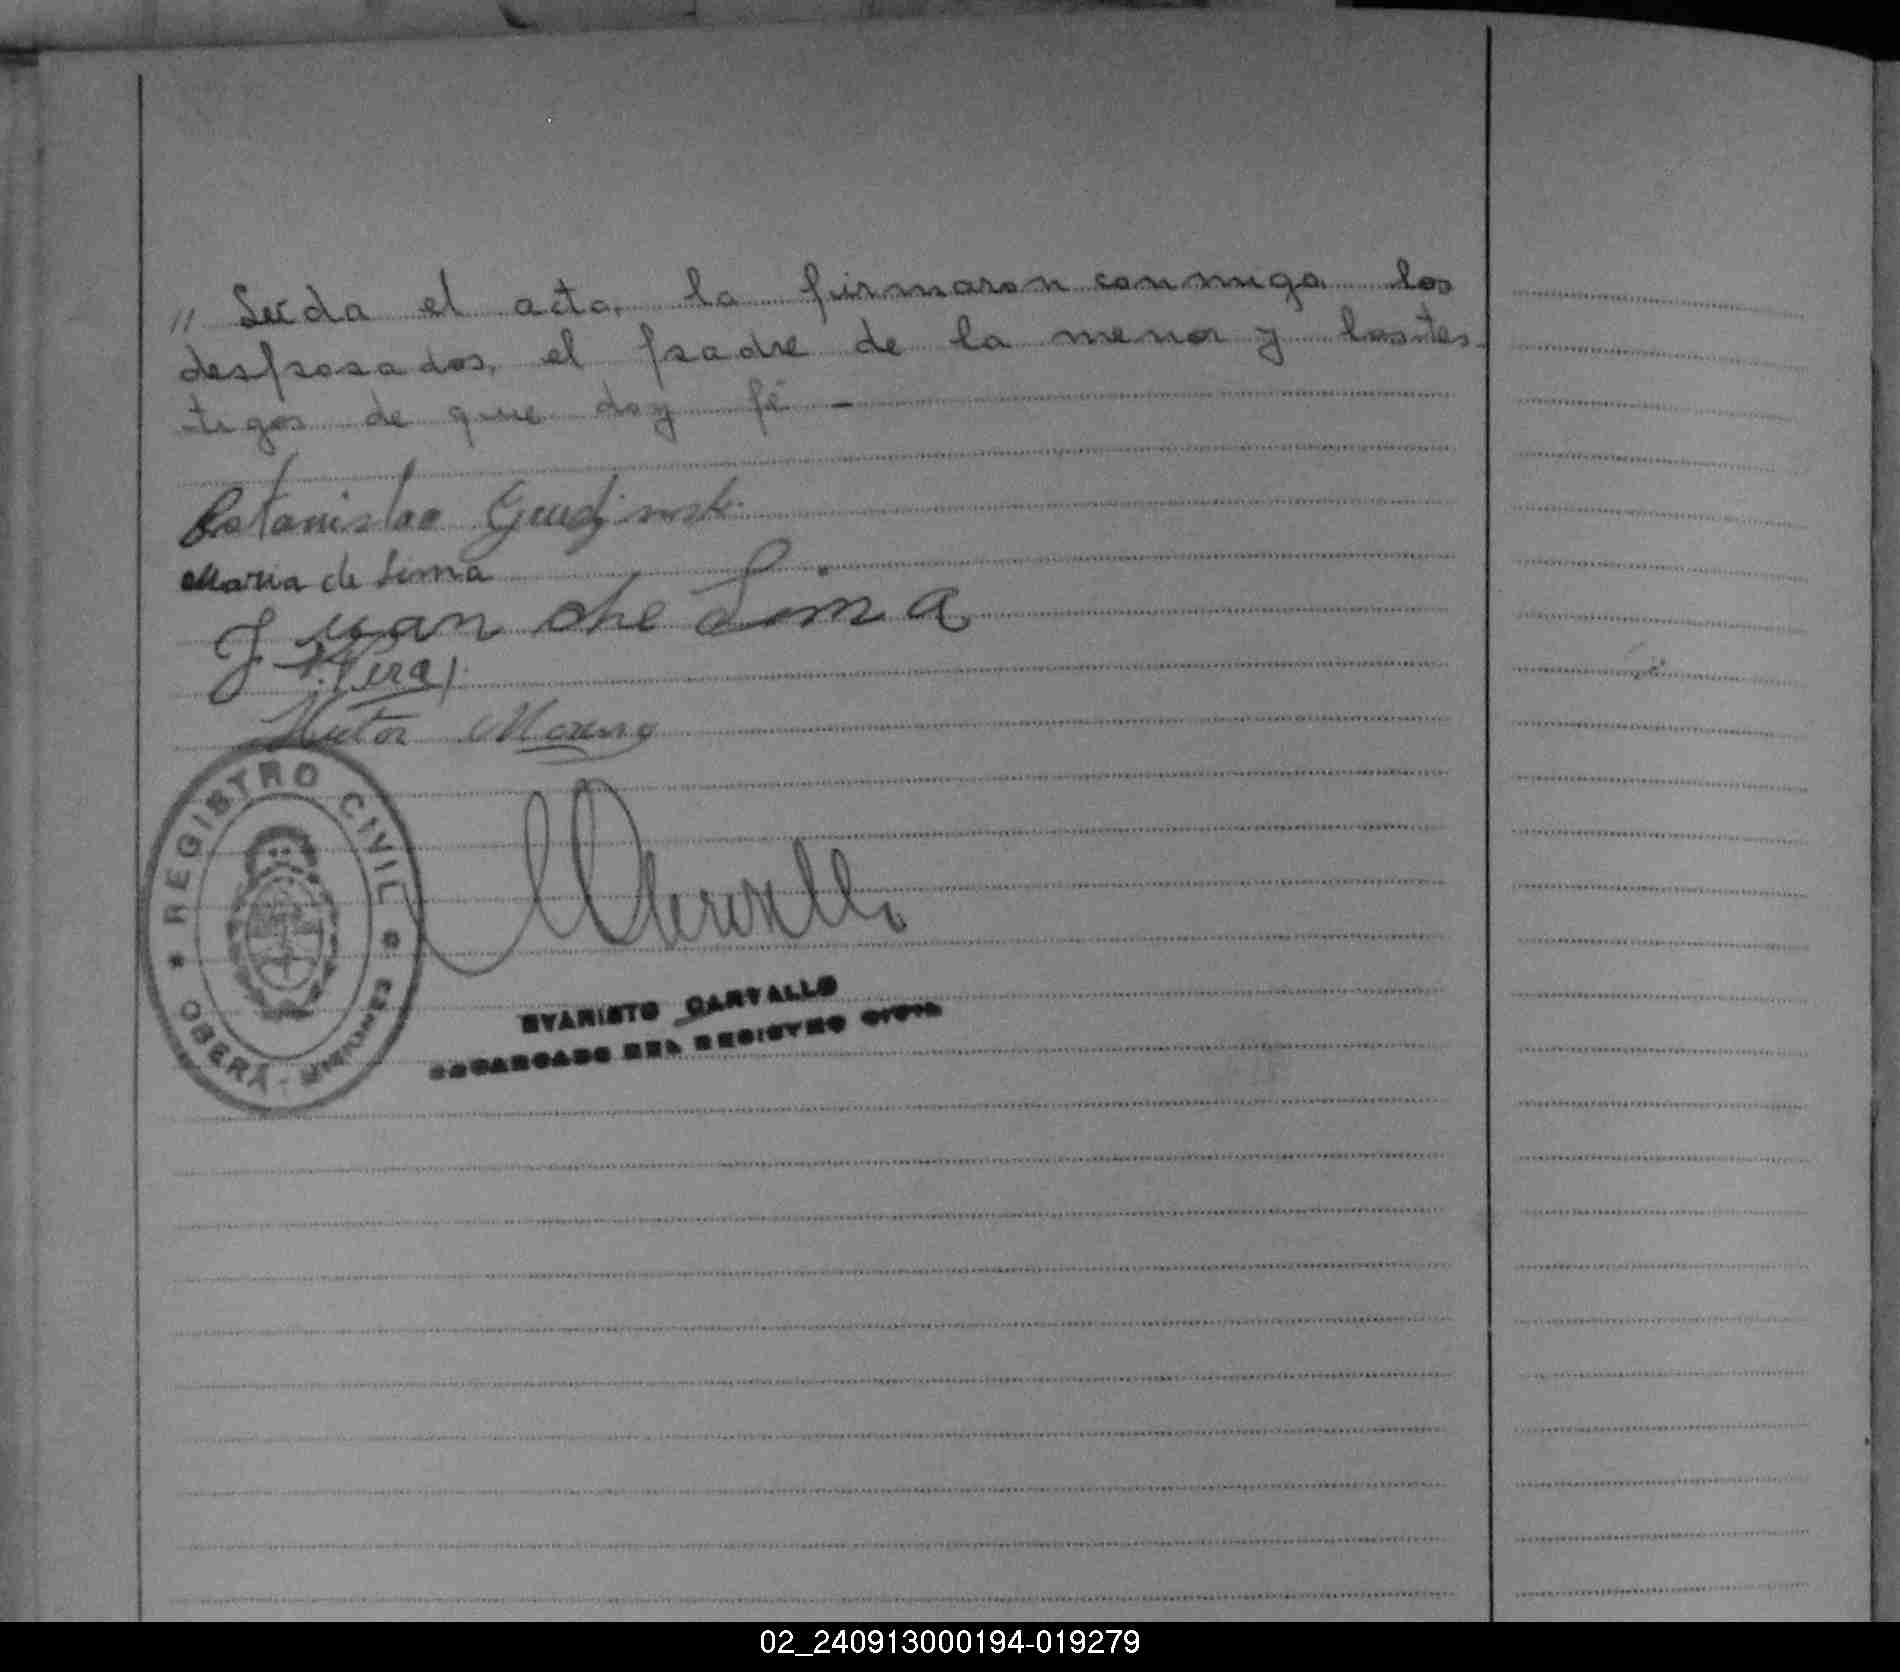 " Leída el acta, la firmaron conmigo los
desposados, el padre de la menor y los tes-
-tigos de que doy fé -
Estanislao
Maria de Lima
Juan de Lima
Vera
Moreno
REGISTRO CIVIL
OBERÁ - MISIONES
EVARISTO CARVALLO
ENCARGADO DEL REGISTRO CIVIL
02_240913000194-019279